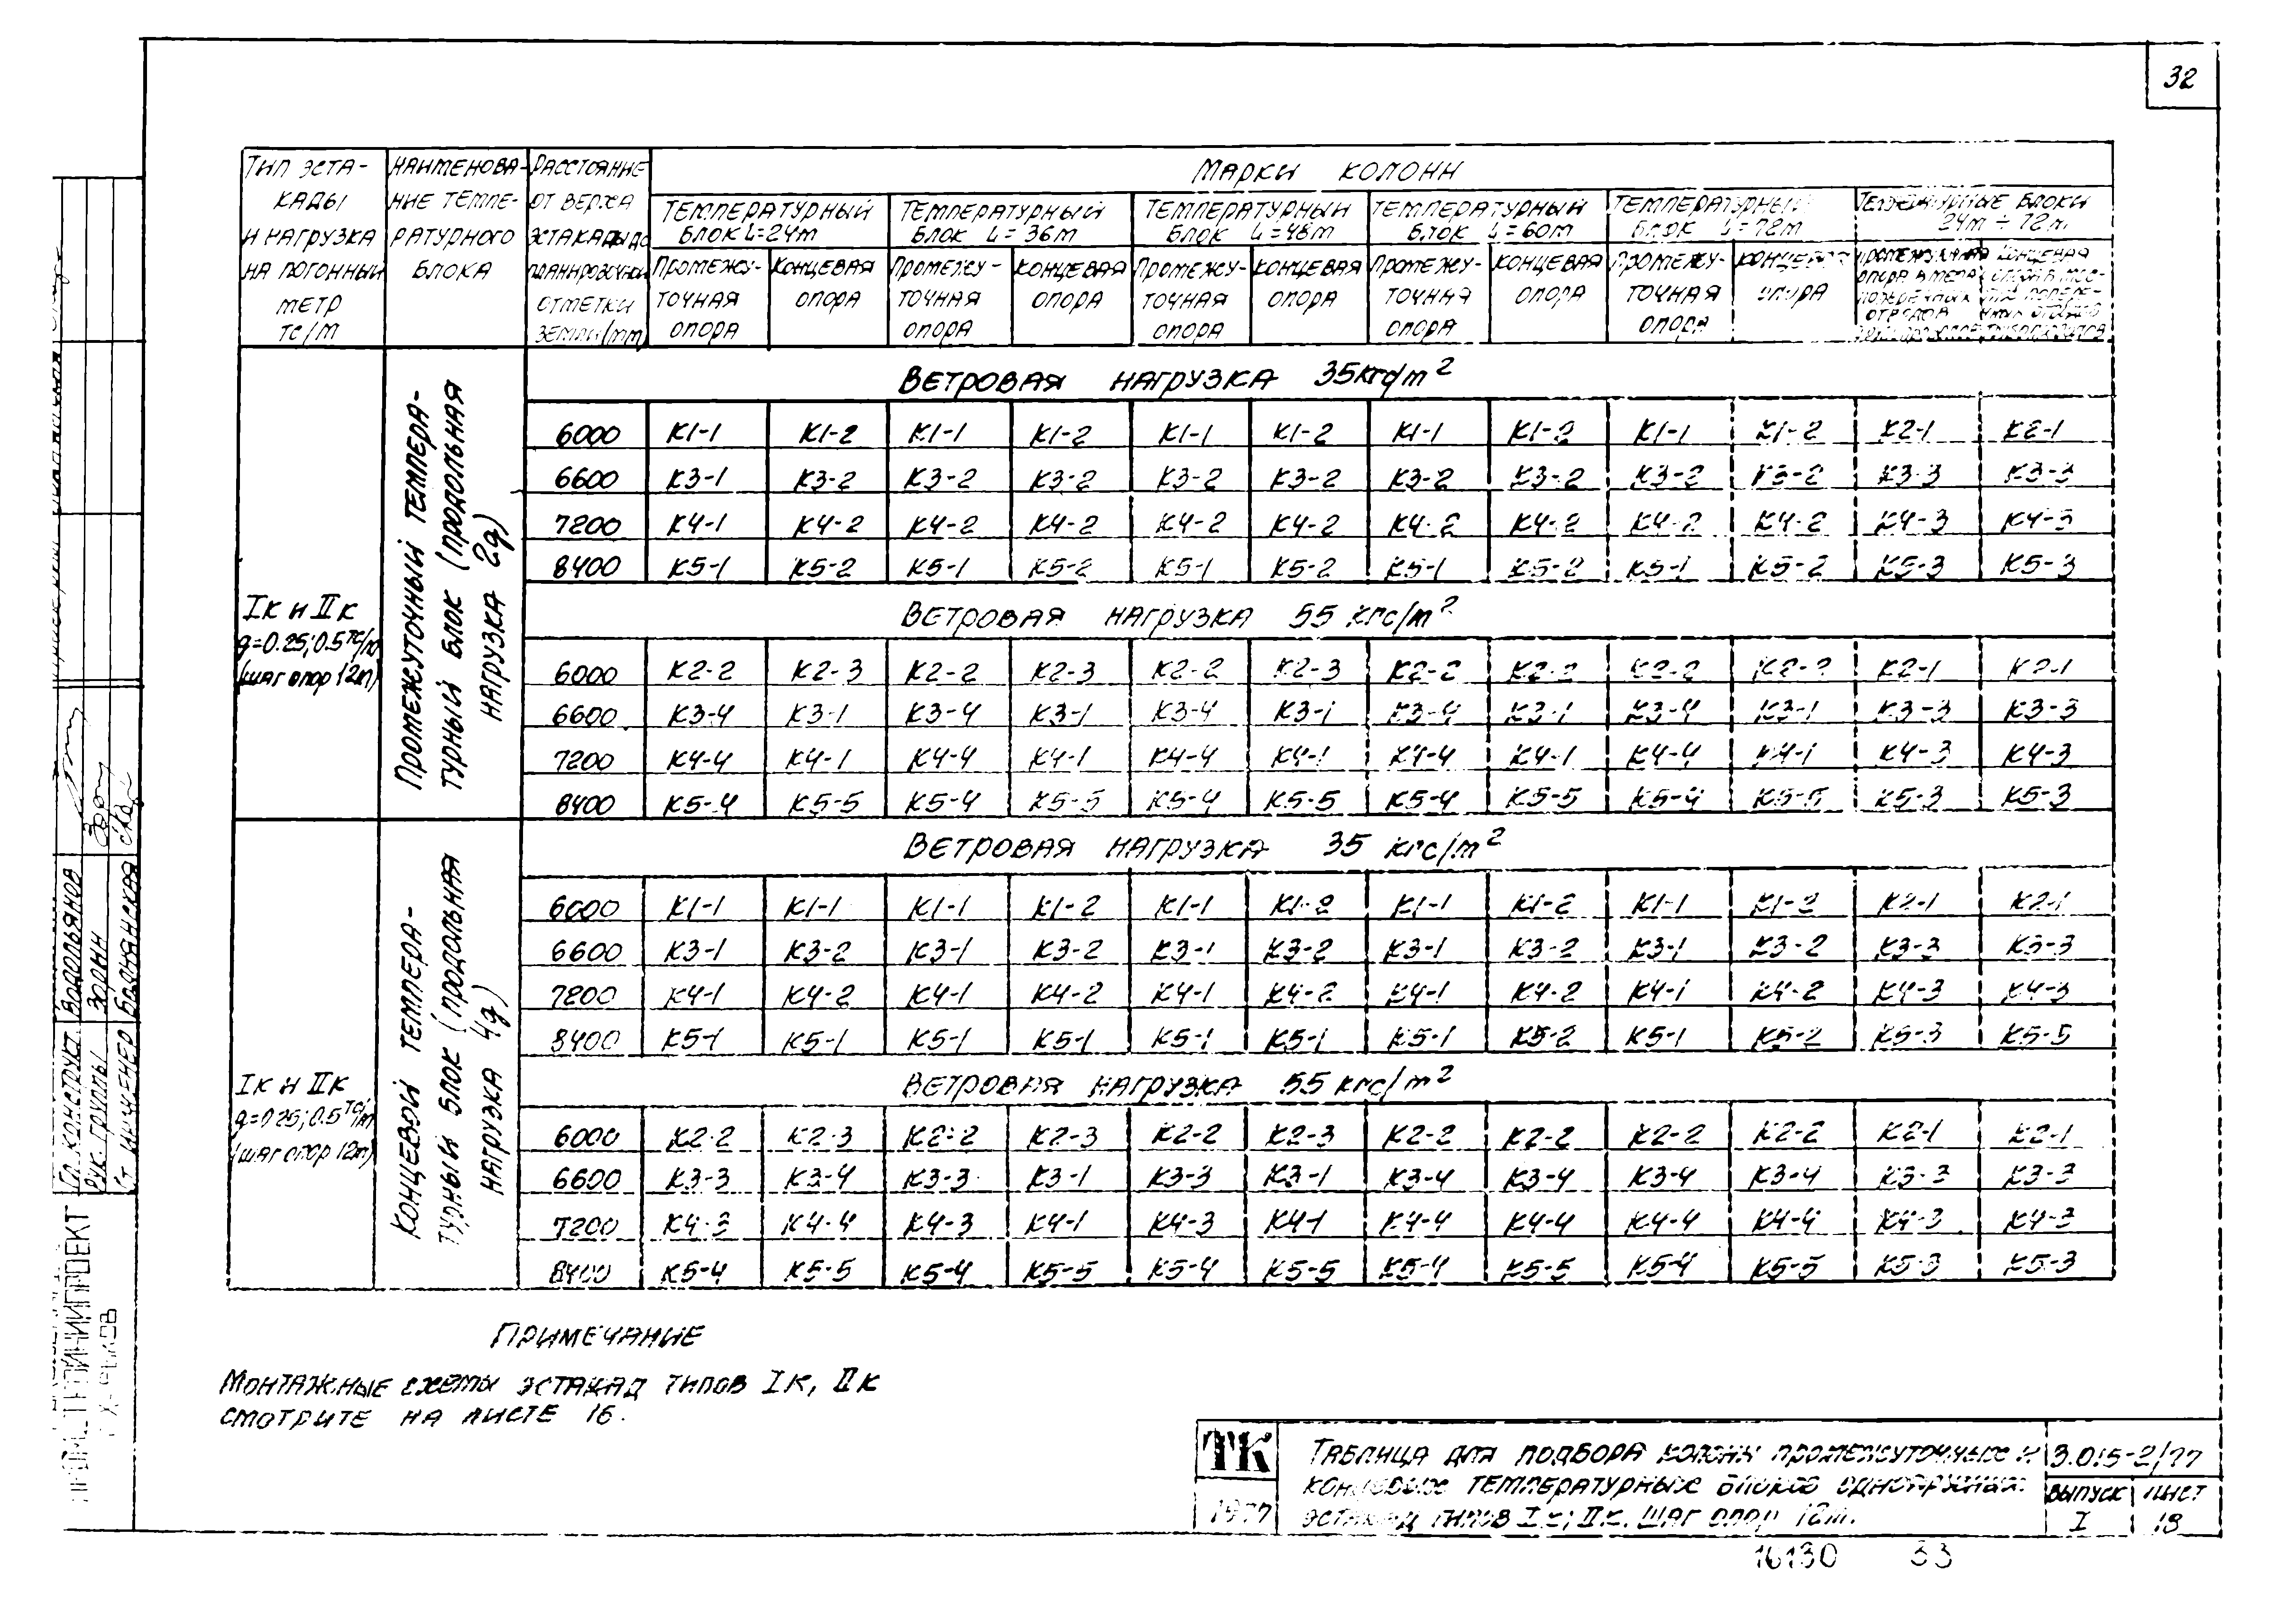 32
Тип эстакады и нагрузка на погонный метр тс/м
Наименование температурного блока
Расстояние от верха эстакады до планировочной отметки земли (mm)
Марки колонн
Температурный блок L=24m
Температурный блок L=36m
Температурный блок L=48m
Температурный блок L=60m
Температурный блок L=72m
Температурные блоки 24m ÷ 72m
Промежуточная опора
Концевая опора
Промежуточная опора
Концевая опора
Промежуточная опора
Концевая опора
Промежуточная опора
Концевая опора
Промежуточная опора
Концевая опора
Iк и IIк
g=0.25; 0.5 тс/m
(шаг опор 12m)
Промежуточный температурный блок (продольная нагрузка 2g)
Ветровая нагрузка 35кгс/m²
6000 К1-1 К1-2 К1-1 К1-2 К1-1 К1-2 К1-1 К1-2 К1-1 К1-2 К2-1 К2-1
6600 К3-1 К3-2 К3-2 К3-2 К3-2 К3-2 К3-2 К3-2 К3-2 К3-2 К3-3 К3-3
7200 К4-1 К4-2 К4-2 К4-2 К4-2 К4-2 К4-2 К4-2 К4-2 К4-2 К4-3 К4-3
8400 К5-1 К5-2 К5-1 К5-2 К5-1 К5-2 К5-1 К5-2 К5-1 К5-2 К5-3 К5-3
Ветровая нагрузка 55 кгс/m²
6000 К2-2 К2-3 К2-2 К2-3 К2-2 К2-3 К2-2 К2-2 К2-2 К2-2 К2-1 К2-1
6600 К3-4 К3-1 К3-4 К3-1 К3-4 К3-1 К3-4 К3-1 К3-4 К3-1 К3-3 К3-3
7200 К4-4 К4-1 К4-4 К4-1 К4-4 К4-1 К4-4 К4-1 К4-4 К4-1 К4-3 К4-3
8400 К5-4 К5-5 К5-4 К5-5 К5-4 К5-5 К5-4 К5-5 К5-4 К5-5 К5-3 К5-3
Iк и IIк
g=0.25; 0.5 тс/m
(шаг опор 12m)
Концевой температурный блок (продольная нагрузка 4g)
Ветровая нагрузка 35 кгс/m²
6000 К1-1 К1-1 К1-1 К1-2 К1-1 К1-2 К1-1 К1-2 К1-1 К1-2 К2-1 К2-1
6600 К3-1 К3-2 К3-1 К3-2 К3-1 К3-2 К3-1 К3-2 К3-1 К3-2 К3-3 К3-3
7200 К4-1 К4-2 К4-1 К4-2 К4-1 К4-2 К4-1 К4-2 К4-1 К4-2 К4-3 К4-3
8400 К5-1 К5-1 К5-1 К5-1 К5-1 К5-1 К5-1 К5-2 К5-1 К5-2 К5-3 К5-3
Ветровая нагрузка 55 кгс/m²
6000 К2-2 К2-3 К2-2 К2-3 К2-2 К2-3 К2-2 К2-2 К2-2 К2-2 К2-1 К2-1
6600 К3-3 К3-4 К3-3 К3-1 К3-3 К3-1 К3-4 К3-4 К3-4 К3-4 К3-3 К3-3
7200 К4-3 К4-4 К4-3 К4-1 К4-3 К4-1 К4-4 К4-4 К4-4 К4-4 К4-3 К4-3
8400 К5-4 К5-5 К5-4 К5-5 К5-4 К5-5 К5-4 К5-5 К5-4 К5-5 К5-3 К5-3
Примечание
Монтажные схемы эстакад типов Iк, IIк
смотрите на листе 16.
ТК
1977
Таблица для подбора колонн промежуточных и
концевых температурных блоков одноярусных
эстакад типов Iк; IIк. Шаг опор 12m.
3.015-2/77
Выпуск I
Лист 18
16130 33
Гл. конструкт. Водопьянов
Рук. группы Зорин
Ст. инженер